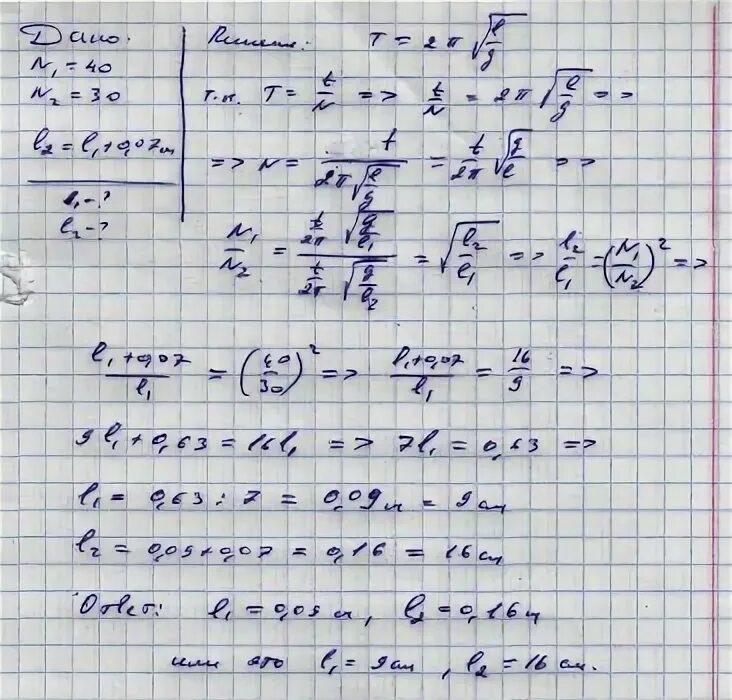 Дано:
N₁ = 40
N₂ = 30
l₂ = l₁ + 0,07м
l₁ - ?
l₂ - ?
Решение: T = 2π√(l/g)
т.к. T = t/N => t/N = 2π√(l/g) =>
=> N = t/(2π√(l/g)) = t/2π √(g/l) =>
N₁/N₂ = (t/2π √(g/l₁))/(t/2π √(g/l₂)) = √(l₂/l₁) => l₂/l₁ = (N₁/N₂)² =>
(l₁ + 0,07)/l₁ = (40/30)² => (l₁ + 0,07)/l₁ = 16/9 =>
9l₁ + 0,63 = 16l₁ => 7l₁ = 0,63 =>
l₁ = 0,63 : 7 = 0,09м = 9 см
l₂ = 0,09 + 0,07 = 0,16 = 16 см
Ответ: l₁ = 0,09 м, l₂ = 0,16 м
или это l₁ = 9 см, l₂ = 16 см.